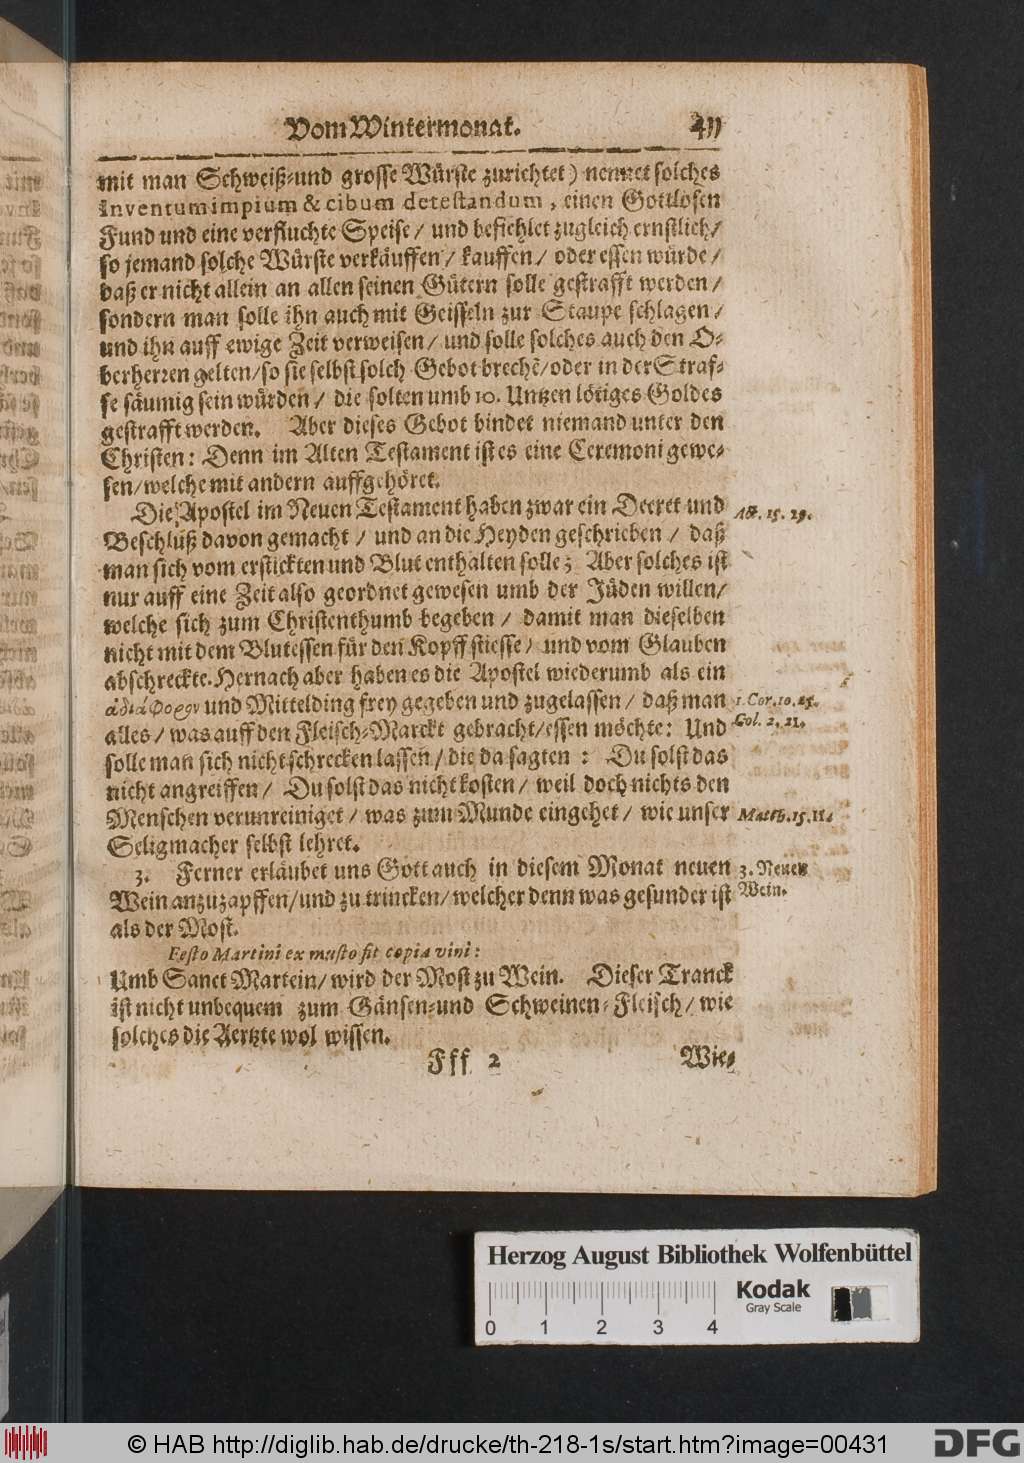 Vom Wintermonat. 411
mit man Schweiß-und grosse Würste zurichtet) nennet solches
Inventum impium & cibum detestandum, einen Gottlosen
Fund und eine verfluchte Speise/ und befiehlet zugleich ernstlich/
so jemand solche Würste verkäuffen/ kauffen/ oder essen würde/
daß er nicht allein an allen seinen Gütern solle gestrafft werden/
sondern man solle ihn auch mit Geisseln zur Staupe schlagen/
und ihn auff ewige Zeit verweisen/ und solle solches auch den O-
berherren gelten/ so sie selbst solch Gebot brechẽ/ oder in der Straf-
fe säumig sein würden/ die solten umb 10. Untzen lötiges Goldes
gestrafft werden. Aber dieses Gebot bindet niemand unter den
Christen: Denn im Alten Testament ist es eine Ceremoni gewe-
sen/ welche mit andern auffgehöret.
Die Apostel im Neuen Testament haben zwar ein Decret und
Act. 15. 29.
Beschluß davon gemacht/ und an die Heyden geschrieben/ daß
man sich vom erstickten und Blut enthalten solle; Aber solches ist
nur auff eine Zeit also geordnet gewesen umb der Jüden willen/
welche sich zum Christenthumb begeben/ damit man dieselben
nicht mit dem Blutessen für den Kopff stiesse/ und vom Glauben
abschreckte. Hernach aber haben es die Apostel wiederumb als ein
ἀδιάφορον und Mittelding frey gegeben und zugelassen/ daß man
1. Cor. 10. 25.
alles/ was auff den Fleisch-Marckt gebracht/ essen möchte: Und
Col. 2. 21.
solle man sich nicht schrecken lassen/ die da sagten: Du solst das
nicht angreiffen/ Du solst das nicht kosten/ weil doch nichts den
Menschen verunreiniget/ was zum Munde eingehet/ wie unser
Matth. 15. 11.
Seligmacher selbst lehret.
3. Ferner erläubet uns Gott auch in diesem Monat neuen
3. Neuen
Wein anzuzapffen/ und zu trincken/ welcher denn was gesunder ist
Wein.
als der Most.
Festo Martini ex musto fit copia vini:
Umb Sanct Martein/ wird der Most zu Wein. Dieser Tranck
ist nicht unbequem zum Gänsen-und Schweinen-Fleisch/ wie
solches die Aertzte wol wissen.
Fff 2 Wie-
Herzog August Bibliothek Wolfenbüttel
Kodak
Gray Scale
0 1 2 3 4
© HAB http://diglib.hab.de/drucke/th-218-1s/start.htm?image=00431
DFG